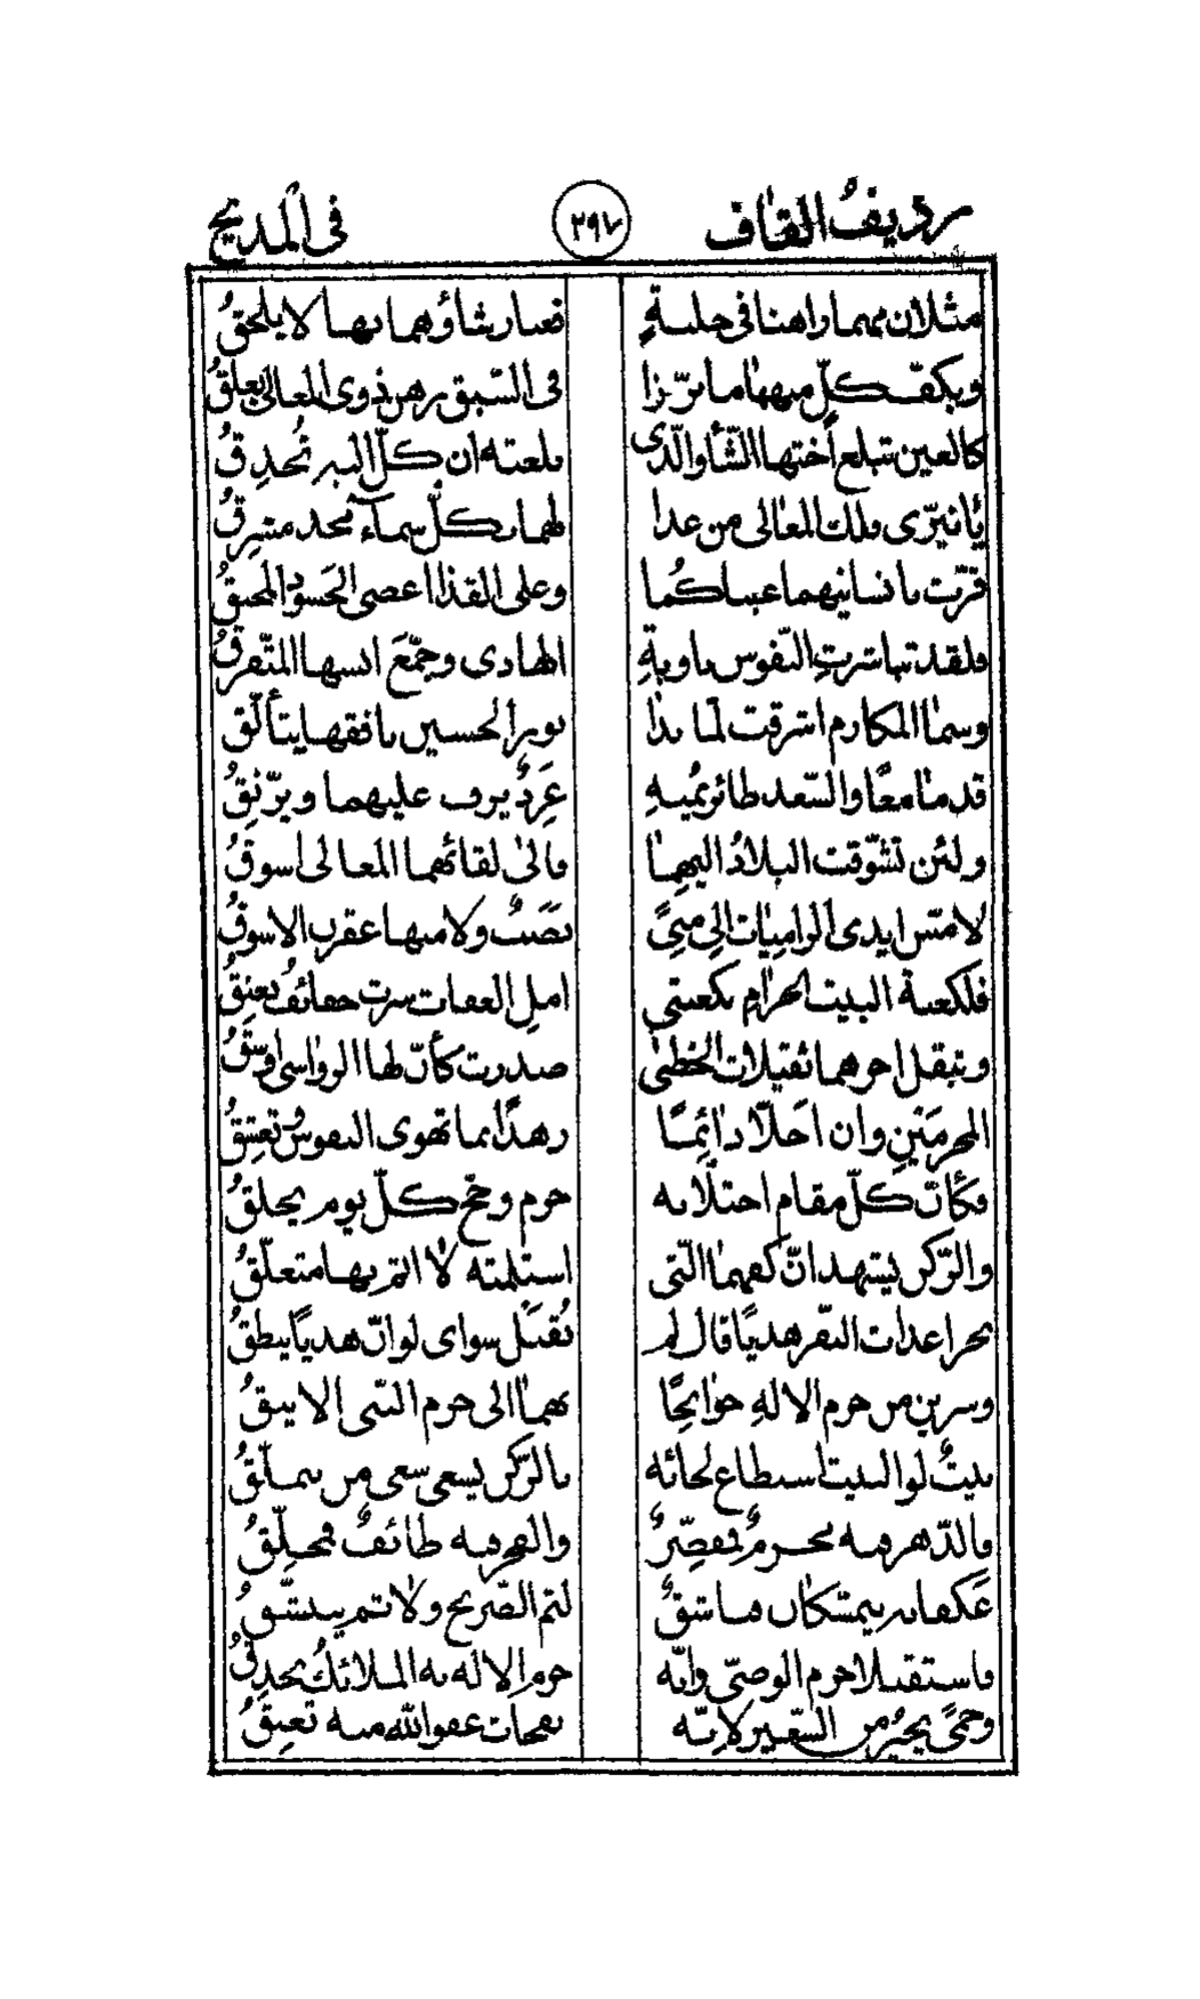 رديفُ القاف ٢٩٧ في المديح
مثلان مهما راهنا في حلبةٍ فغبار شأوهما بها لا يلحقُ
وبكفّ كلّ منهما ما برّزا في السّبق رهن ذوى المعالى يعلقُ
كالعين تبلغ أختها الشّأو الّذى بلغته ان كلّ اليه تُحدِقُ
يا نيّرى فلك المعالى من غدا لهما بكلّ سمآء مجد مشرقُ
قرّت بانسانيهما عيناكُما وعلى القذا اغضى الحَسود المحنقُ
فلقد تباشرتِ النّفوس باوبةِ الهادى وجمّعَ انسها المتّفرقُ
وسما المكارم اشرقت لمّا بدا نور الحسين بافقها يتألّق
قدما معًا والسّعد طائر يُمنهِ غَرِدٌ يرف عليهما ويرّنقُ
ولئن تشّوقت البلادُ اليهما فالى لقائهما المعالى اسوقُ
لا مسّ ايدى الواميات الى منىً نصَبٌ ولا منها عقرن الاسوقُ
فلكعبة البيت الحرام بكعبتى امل العفات سرت حقائفُ تعنقُ
وتثقل اجرهما ثقيلات الخطى صدرت كأنّ لها الرواسى اوسُقُ
المحرمَين وان احَلّا دائِمًا زهدًا بما تهوى النفوس وتعشقُ
وكأنّ كلّ مقام احتلّا به حرم وحجّ كلّ يوم يخلقُ
والرّكن يشهد انّ كفهما الّتى استلمته لا اثم بها متعلّقُ
نحرا عدات الفقر هديًا قال لم تُقبَل سواى لو انّ هديًا ينطقُ
وسرين من حرم الالهِ حوانحًا بهما الى حرم النبى الاينقُ
بيتٌ لو البيت اسطاع لجائه بالرّكن يسعى سعى من يتملّقُ
فالدّهر فيه محرمٌ فمقصّرٌ والفجر فيه طائفٌ فمحلّقُ
عَكفا به يتمسّكان فناشقٌ لثم الضّريح ولاثم يتنشّقُ
فاستقبلا حرم الوصىّ وانّه حرم الاله به الملائكُ يحدقُ
وحمىً يجيرُ من السّعير لانّه نفحات عفو الله منه تعبقُ